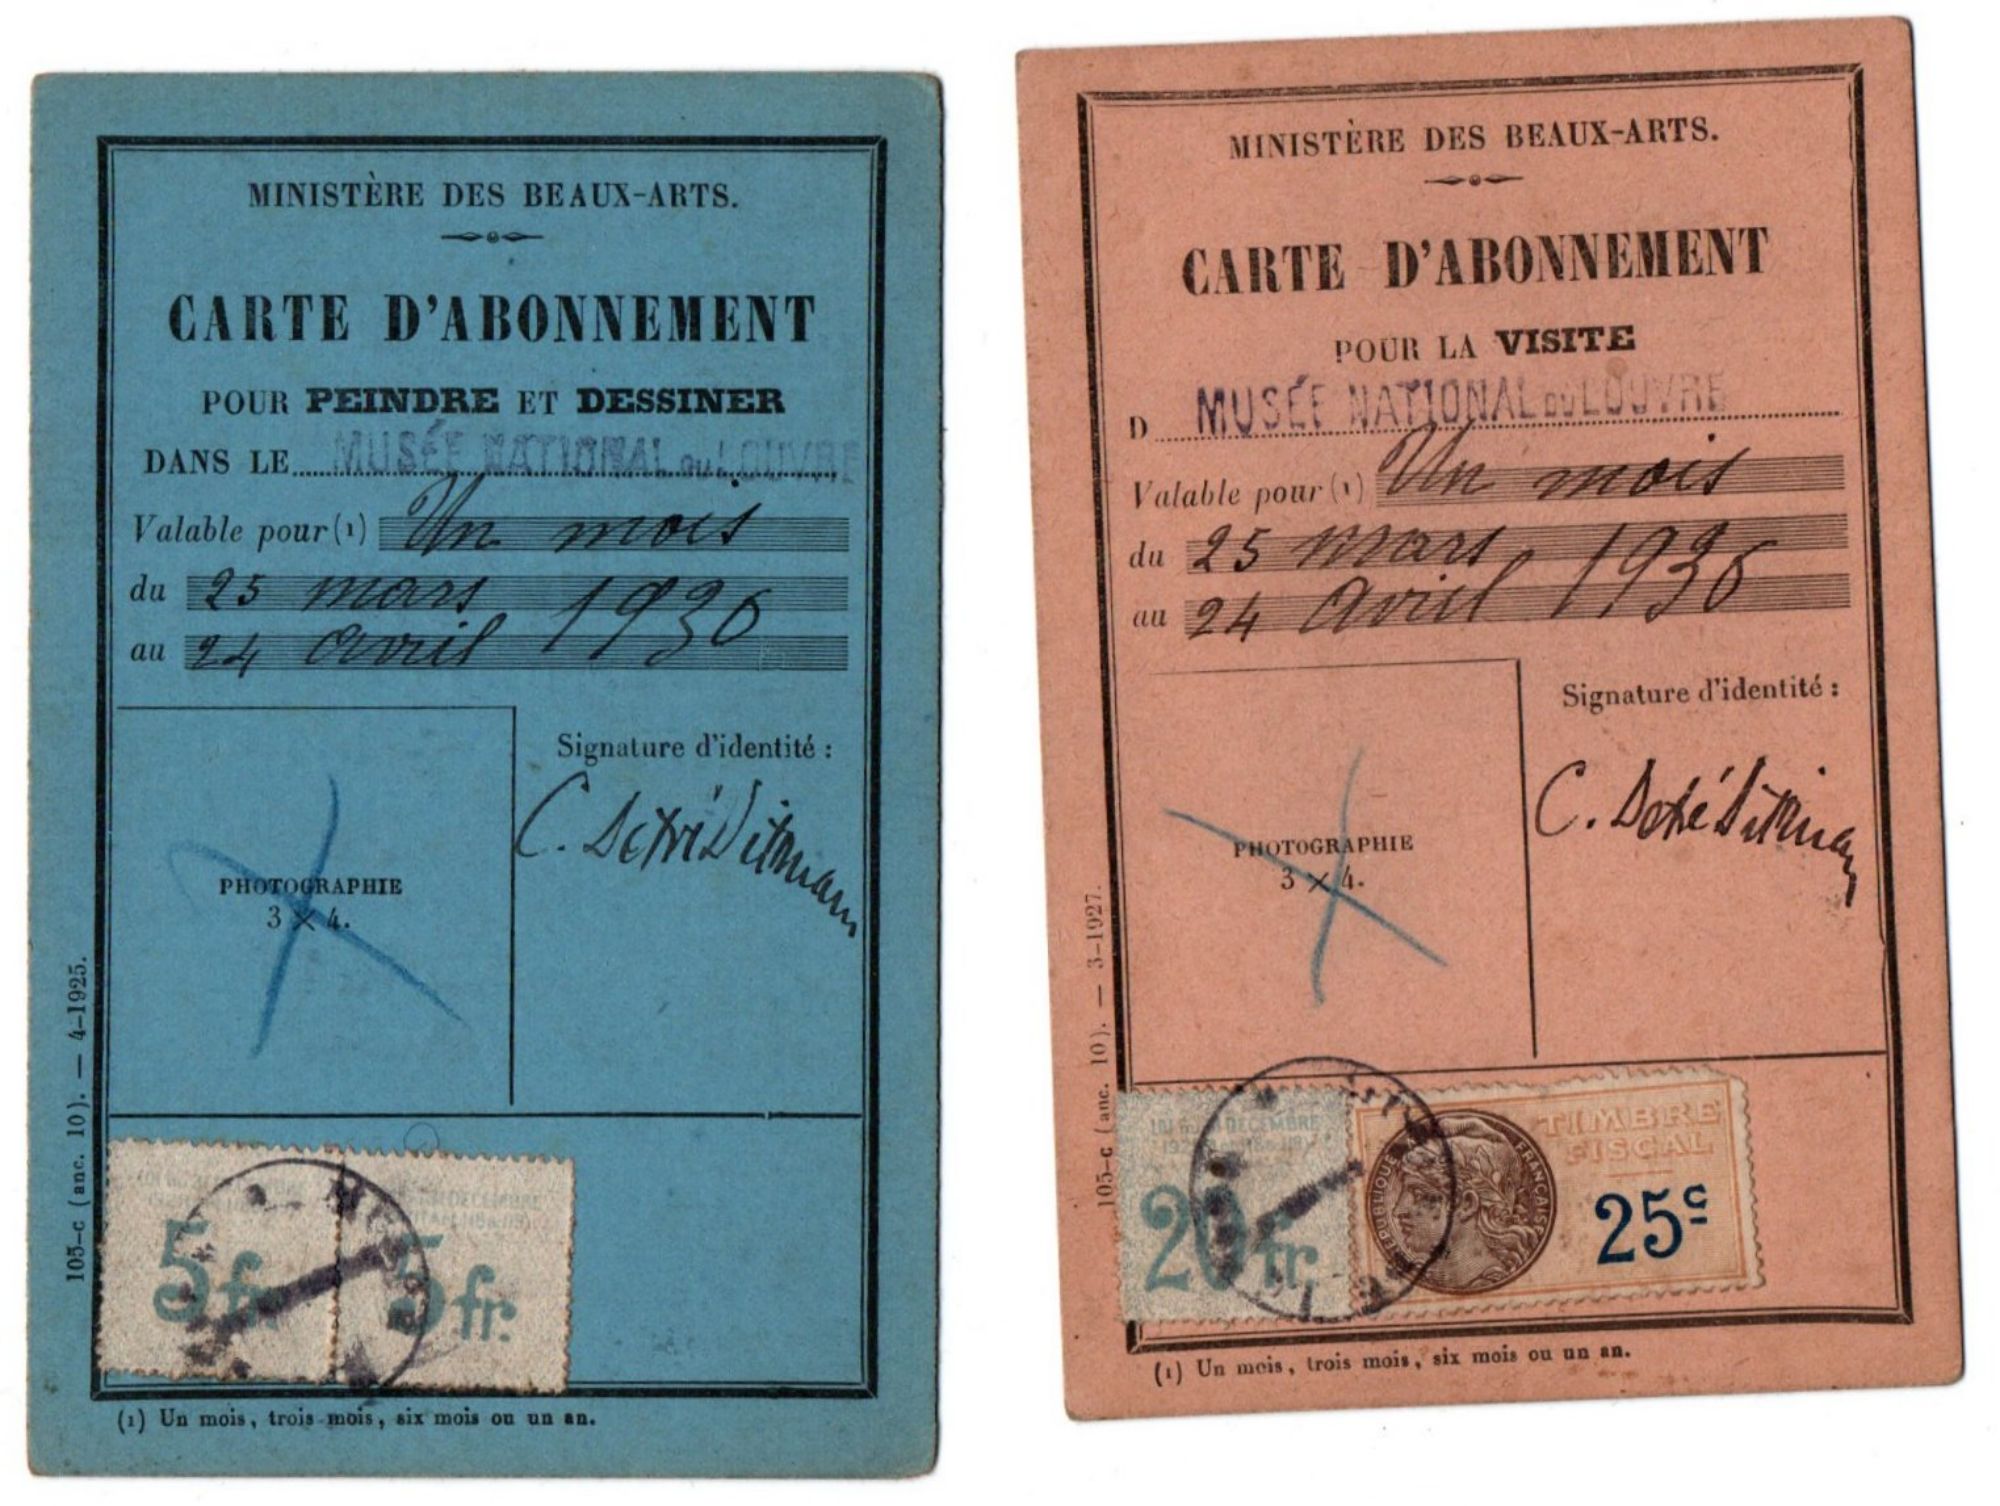 MINISTÈRE DES BEAUX-ARTS.
CARTE D'ABONNEMENT
POUR PEINDRE ET DESSINER
DANS LE MUSÉE NATIONAL DU LOUVRE
Valable pour (1) Un mois
du 25 mars
au 24 avril 1936
Signature d'identité :
C.
PHOTOGRAPHIE
3 × 4.
105-c (anc. 10). — 4-1925.
5 fr. 5 fr.
(1) Un mois, trois mois, six mois ou un an.
MINISTÈRE DES BEAUX-ARTS.
CARTE D'ABONNEMENT
POUR LA VISITE
D MUSÉE NATIONAL DU LOUVRE
Valable pour (1) Un mois
du 25 mars
au 24 avril 1936
Signature d'identité :
C.
PHOTOGRAPHIE
3 × 4.
105-c (anc. 10). — 3-1927.
DECEMBRE
20 fr.
REPUBLIQUE FRANÇAISE
TIMBRE
FISCAL
25c
(1) Un mois, trois mois, six mois ou un an.